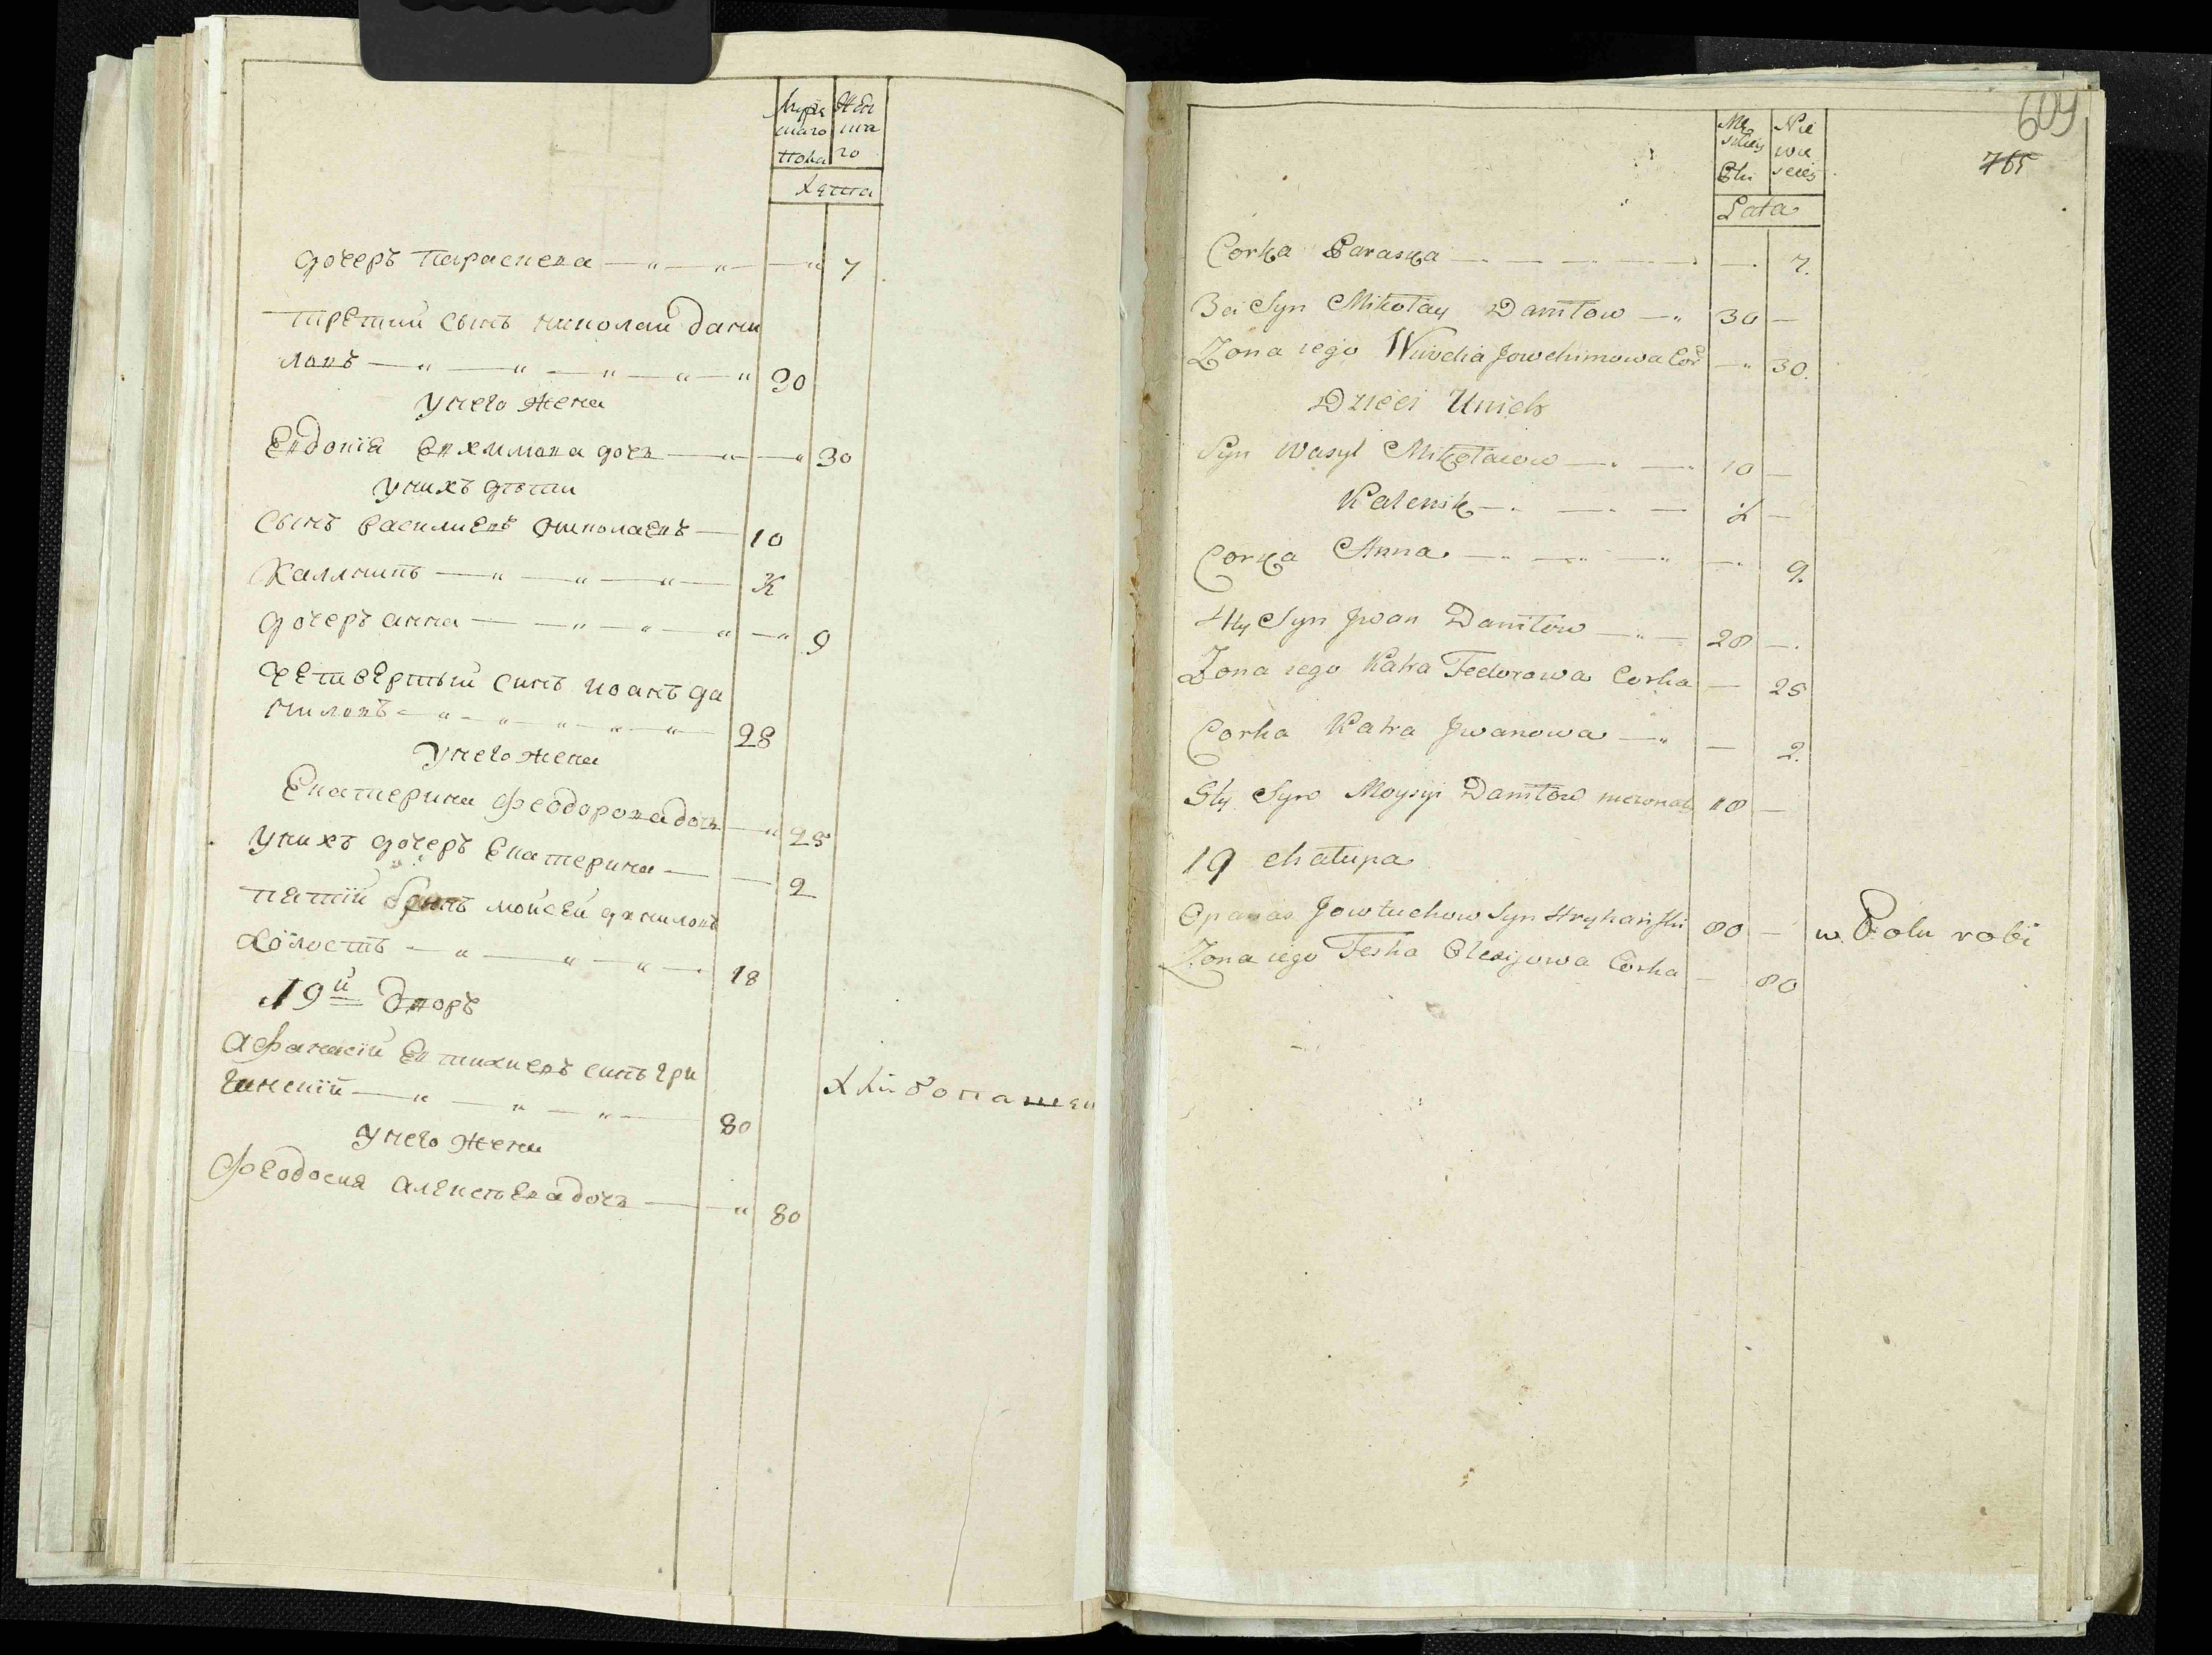 Мужескаго Женскаго
пола
Лѣта
дочеръ Параскева — 7
третий сынъ николай дани
ловъ — 30
У него жена
Евдокіа Евхимова дочъ — 30
У нихъ дѣти
сынъ василиевъ николаевъ — 10
Каллѣникъ — ½
дочеръ анна — 9
четвертый синъ иоанъ да
ниловъ — 28
У него жена
Екатерина феодорова дочъ — 25
У нихъ дочеръ Екатерина — 2
пятій синъ мойсей даниловъ
холостъ — 18
19й Дворъ
афанасій Евтихиевъ синъ гри
ганскій — 80
У него жена
Феодосия алексѣева дочъ — 80
хлѣбопашец
609
765
Męskiej Płci
Niewieściej
Lata
Corka Paraska — 7.
3ci Syn Mikołay Daniłow — 30 —
Zona iego Wiwdia Jowchimowa Cor — 30.
Dzieci Unich
Syn Wasyl Mikołaiow — 10 —
Kalenik — ½ —
Corka Anna — 9.
4ty Syn Jwan Daniłow — 28 —
Zona iego Katra Fedorowa Corka — 25
Corka Katra Jwanowa — 2.
5ty Syn Moysyi Daniłow niezonaty 18 —
19 chałupa
Opanas Jowtuchow Syn Hryhański 80 — w Polu robi
Zona iego Feska Olexijowa Corka — 80